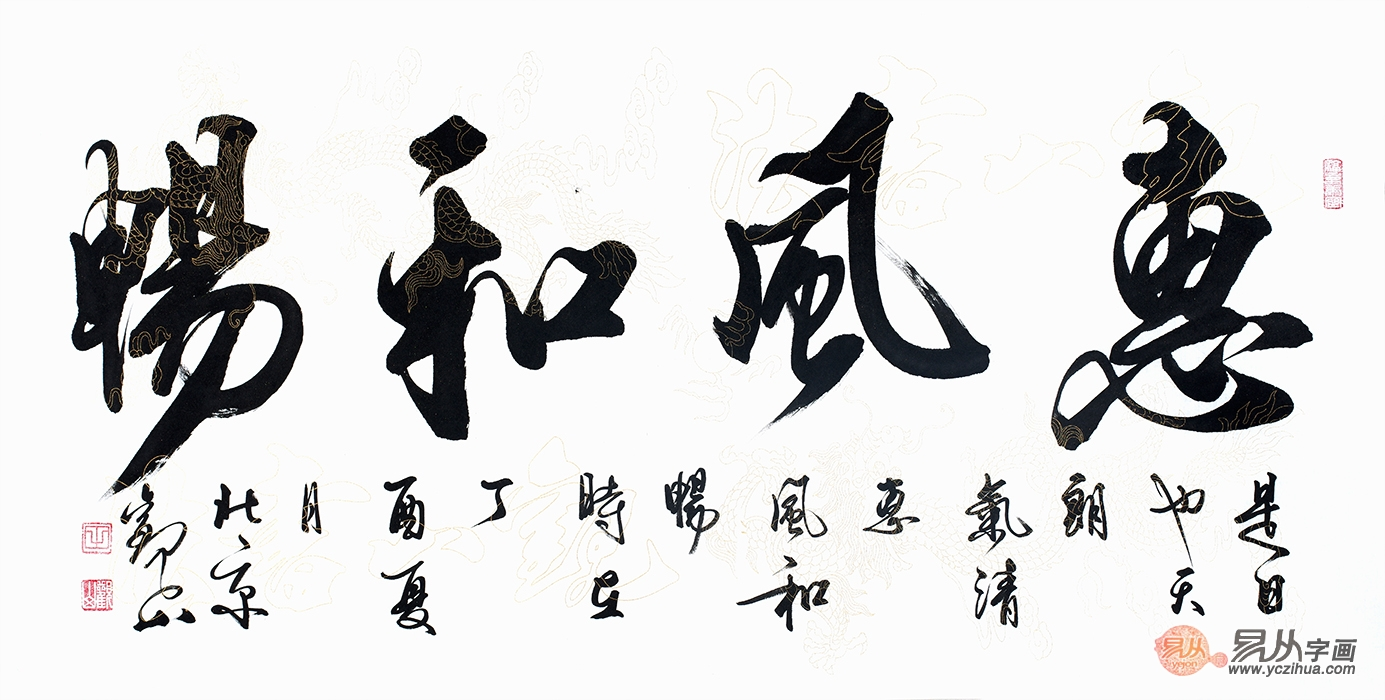 惠風和暢
是日
也天
朗
氣清
惠
風和
暢
時在
丁
酉夏
月
北京
觀山
易从
易从字画
www.yczihua.com